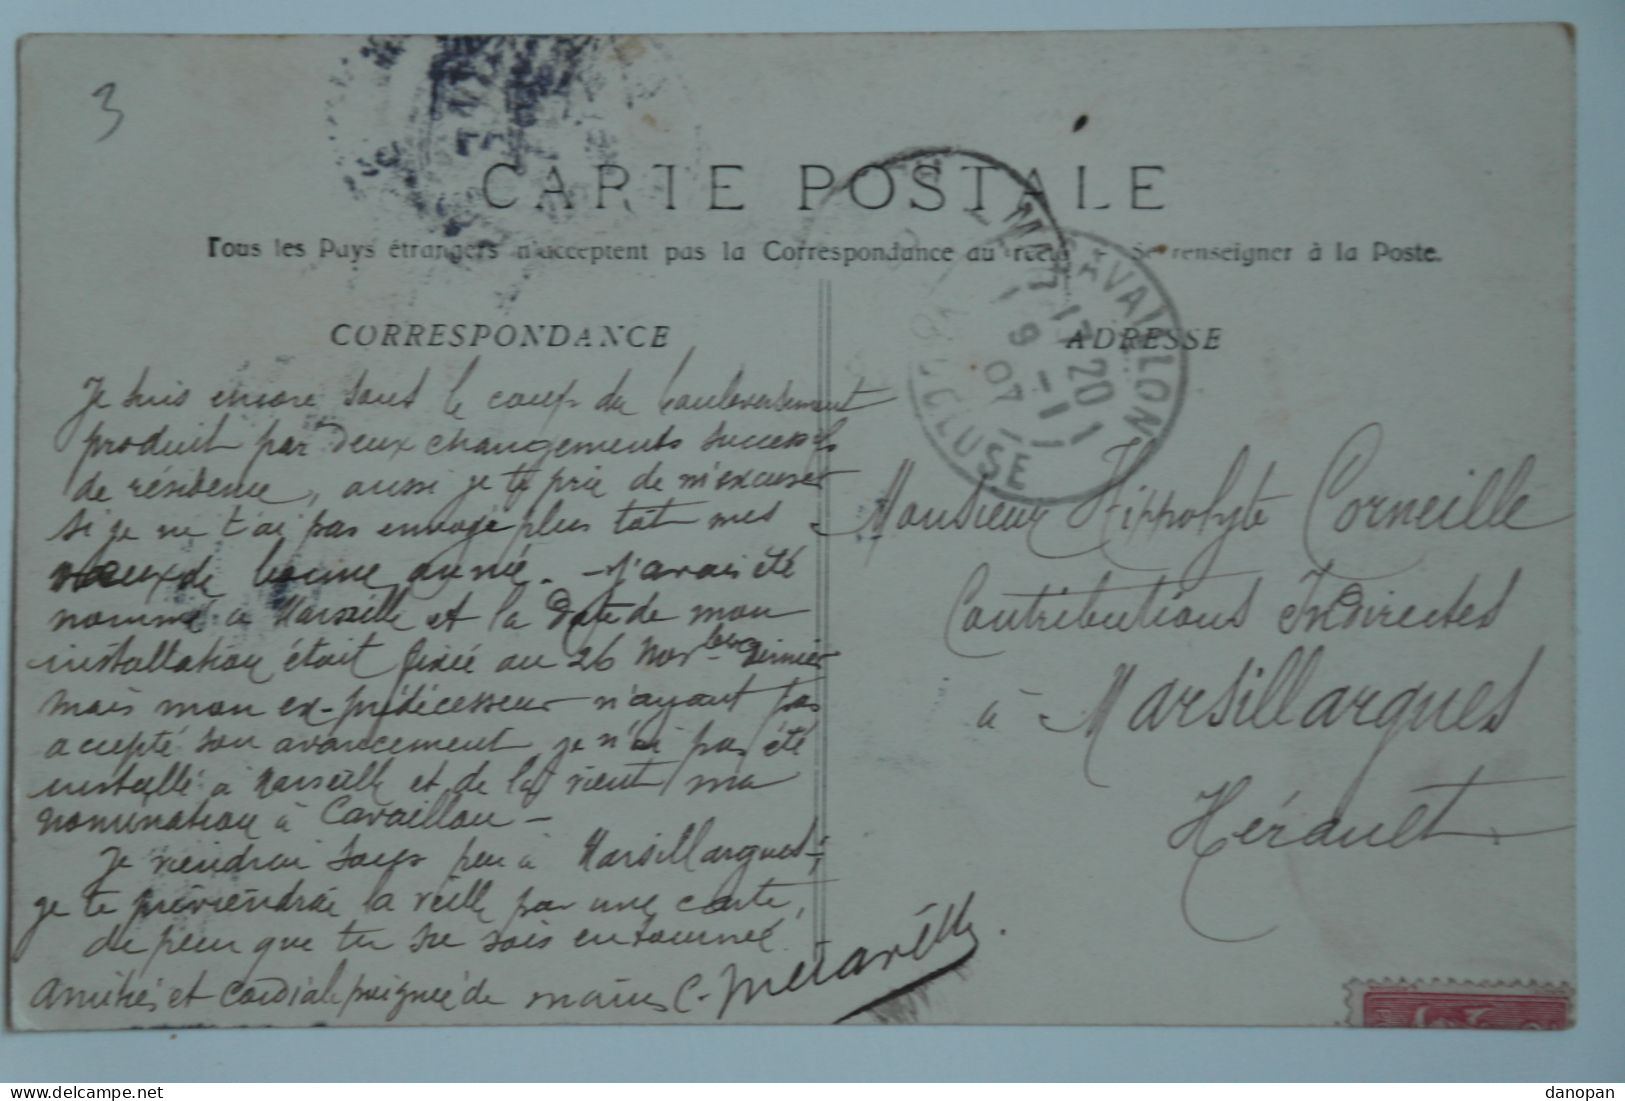 3
CARTE POSTALE
Tous les Pays étrangers n'acceptent pas la Correspondance au recto Se renseigner à la Poste.
CORRESPONDANCE
Je suis encore sous le coup du bouleversement
produit par deux changements successifs
de résidence, aussi je te prie de m'excuser
si je ne t'ai pas envoyé plus tôt mes
vœux de bonne année. - J'avais été
nommé à Marseille et la date de mon
installation était fixée au 26 Novbre dernier
mais mon ex-prédécesseur n'ayant pas
accepté son avancement je n'ai pas été
installé à Marseille et de là vient ma
nomination à Cavaillon -
Je viendrai sous peu à Marsillargues;
je te préviendrai la veille par une carte,
de peur que tu ne sois en tournée.
Amitiés et cordiale poignée de mains C.
ADRESSE
CAVAILLON
17 20
9 - 1
07
VAUCLUSE
Monsieur Hippolyte Corneille
Contributions Indirectes
à Marsillargues
Hérault
danopan